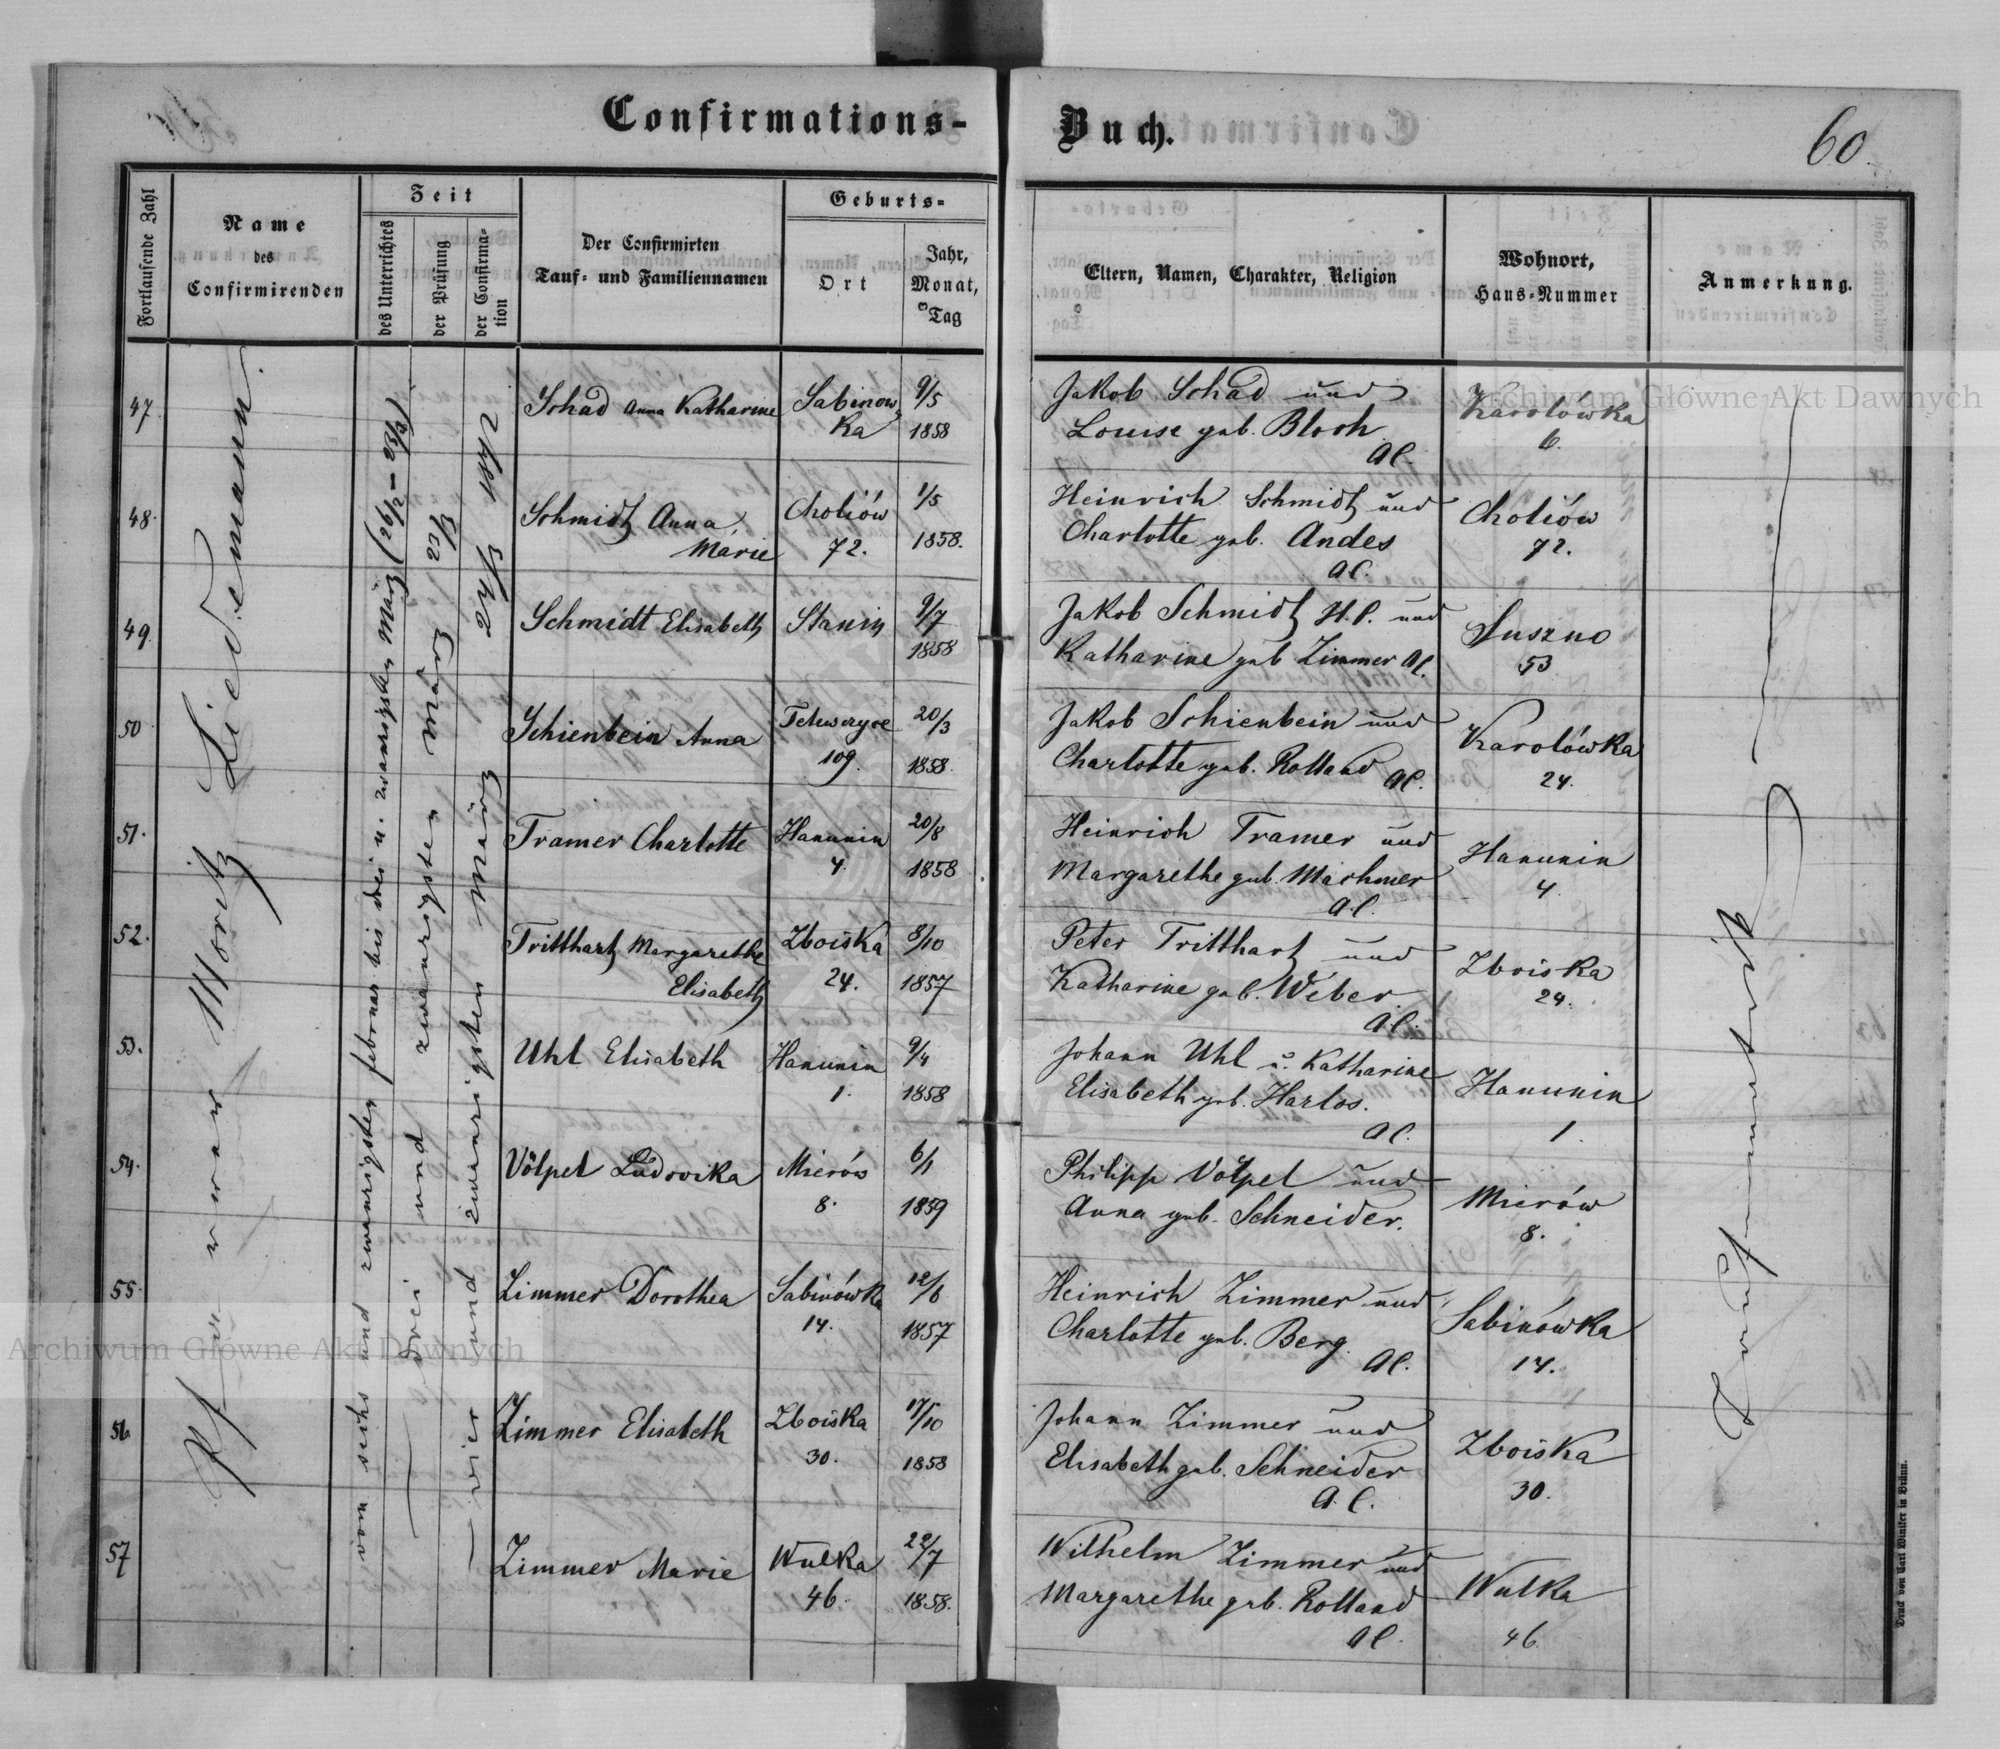 Confirmations-Buch.
60.
Fortlaufende Zahl
Name
des
Confirmirenden
Zeit
des Unterrichtes
der Prüfung
der Confirma-
tion
Der Confirmirten
Tauf- und Familiennamen
Geburts-
Ort
Jahr,
Monat,
Tag
Eltern, Namen, Charakter, Religion
Wohnort,
Haus-Nummer
Anmerkung.
Moritz Liedemann.
vom sechs und zwanzigsten februar bis drei u. zwanzigsten März (26/2 – 23/3)
drei und zwanzigsten März 23/3
vier und zwanzigsten März 24/3
47.
Schad Anna Katharine
Sabinow
ka
9/5
1858
Jakob Schad und
Louise geb. Bloch
AC.
Karolówka
6.
48.
Schmidt Anna
Marie
Choliów
72.
1/5
1858.
Heinrich Schmidt und
Charlotte geb. Andes
AC.
Choliów
72.
49.
Schmidt Elisabeth
Stanin
9/7
1858
Jakob Schmidt H.C. und
Katharine geb. Zimmer AC.
Suszno
53
50.
Schienbein Anna
109.
20/3
1858.
Jakob Schienbein und
Charlotte geb. Rolland
AC.
Karolówka
24.
51.
Tramer Charlotte
Hanunin
4.
20/8
1858
Heinrich Tramer und
Margarethe geb. Machmer
AC.
Hanunin
4.
52.
Tritthart Margarethe
Elisabeth
Zboiska
24.
8/10
1857
Peter Tritthart und
Katharine geb. Weber
AC.
Zboiska
24.
53.
Uhl Elisabeth
Hanunin
1.
9/4
1858
Johann Uhl u. Katharine
Elisabeth geb. Harlos.
AC.
Hanunin
1.
54.
Völpel Ludovika
Mierów
8.
6/1
1859
Philipp Völpel und
Anna geb. Schneider.
Mierów
8.
55.
Zimmer Dorothea
Sabinówka
14.
12/6
1857
Heinrich Zimmer und
Charlotte geb. Berg.
AC.
Sabinówka
14.
56
Zimmer Elisabeth
Zboiska
30.
17/10
1858
Johann Zimmer und
Elisabeth geb. Schneider
A.C.
Zboiska
30.
57
Zimmer Marie
Wulka
46.
22/7
1858.
Wilhelm Zimmer und
Margarethe geb. Rolland
AC.
Wulka
46.
Druck von Carl Winiker in Brünn.
Archiwum Główne Akt Dawnych
Archiwum Główne Akt Dawnych